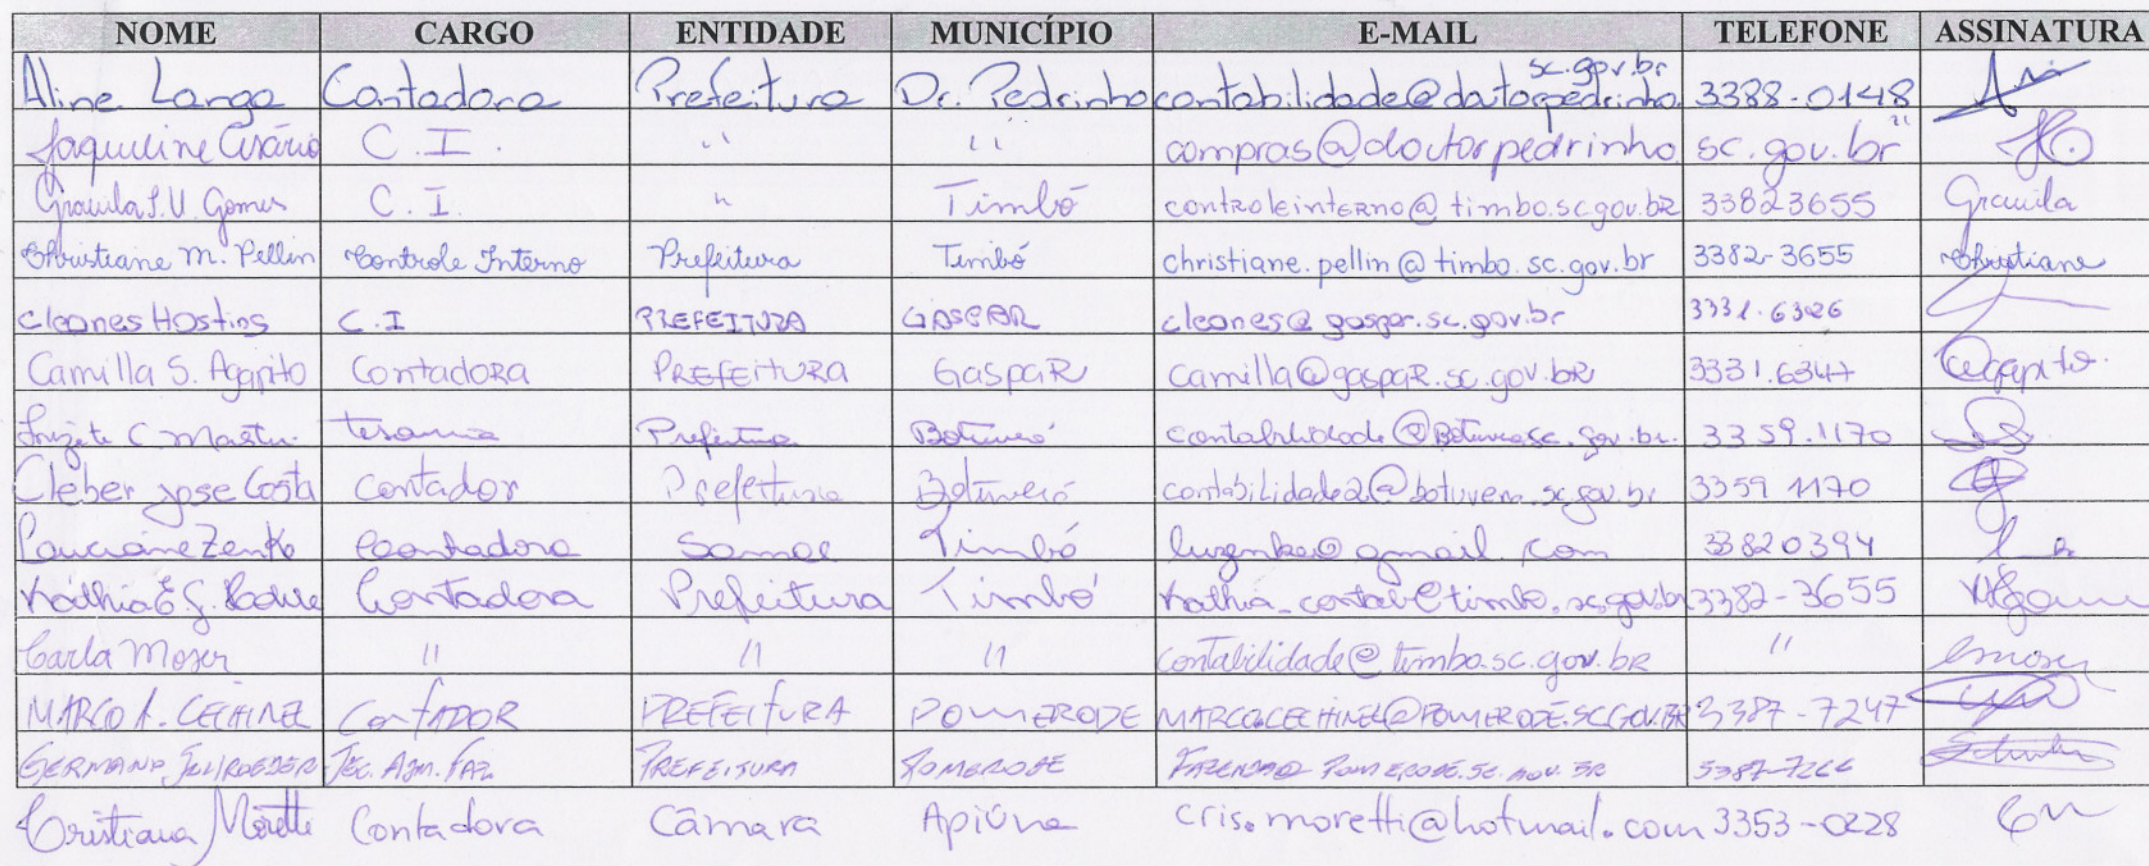 NOME CARGO ENTIDADE MUNICÍPIO E-MAIL TELEFONE ASSINATURA
Aline Longo Contadora Prefeitura Dr. Pedrinho contabilidade@doutorpedrinho.sc.gov.br 3388-0148
Jaqueline Cesário C.I. " " compras@doutorpedrinho sc.gov.br "
C.I. " Timbó controleinterno@timbo.sc.gov.bR 33823655
Christiane M. Pellin Controle Interno Prefeitura Timbó christiane.pellin@timbo.sc.gov.br 3382-3655 Christiane
Cleones Hostins C.I PREFEITURA GASPAR cleones@gaspar.sc.gov.br 3331.6326
Camilla S. Agapito ContadoRA PREFEituRA GaspaR camilla@gaspaR.sc.gov.bR 3331.6347 Agapito
Prefeitura Botuverá 3359.1170
Cleber jose Costa contador Prefeitura Botuverá contabilidade2@botuvera.sc.gov.br 3359 1170
Zenke Contadora Samae Timbó luzenke@gmail.com 33820394
Contadora Prefeitura Timbó 3382-3655
Carla Moser " " " contabilidade@timbo.sc.gov.bR " cmoser
MARCO A. CECHINEL CONTADOR PREFEITURA POMERODE MARCO.CECHINEL@POMERODE.SC.GOV.BR 3387-7247
GERMANO TEC. ADM. FAZ. PREFEITURA POMERODE
Cristiana Moretti Contadora Câmara Apiúna cris.moretti@hotmail.com 3353-0228